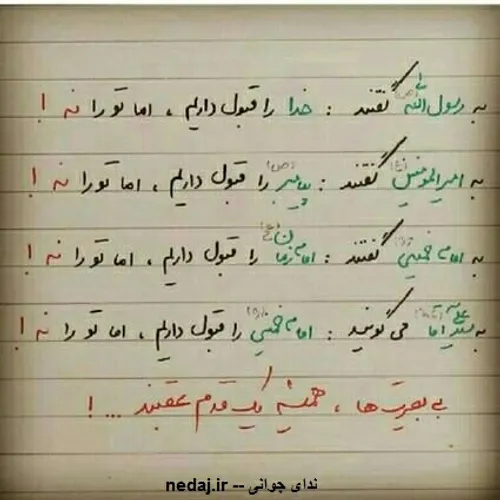 به رسول الله (ص) گفتند : خدا را قبول داریم ، اما تو را نه !
به امیرالمومنین (ع) گفتند : پیامبر (ص) را قبول داریم ، اما تو را نه !
به امام خمینی (ره) گفتند : امام زمان (عج) را قبول داریم ، اما تو را نه !
به سید علی آقا می گویند : امام خمینی (ره) را قبول داریم ، اما تو را نه !
بی بصیرت ها ، همیشه یک قدم عقبند ... !
ندای جوانی -- nedaj.ir